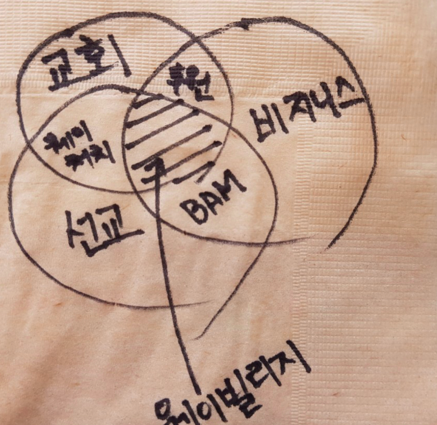 교회
후원
비지니스
웨이
처치
선교
BAM
웨이빌리지